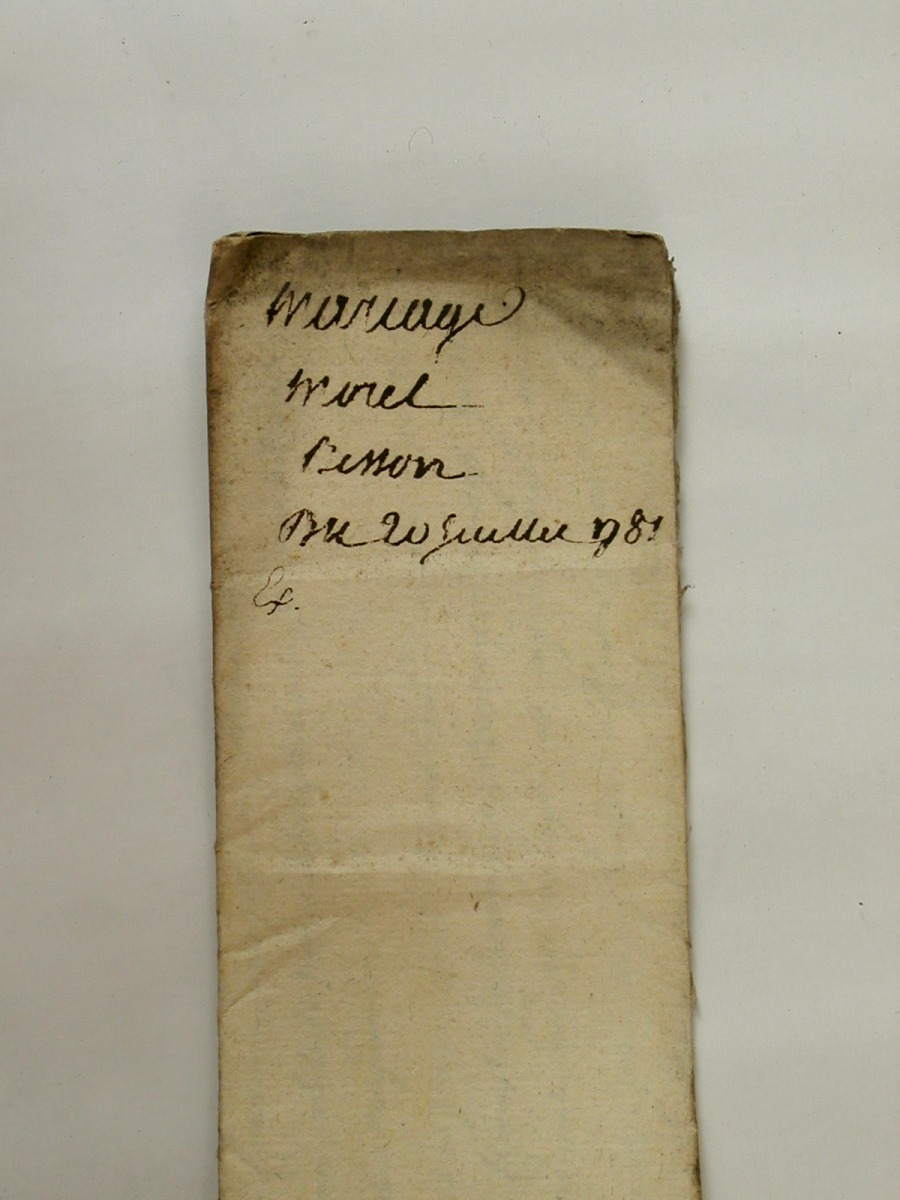 Mariage
Morel
Besson
Du 20 Juillet 1781
Ex.